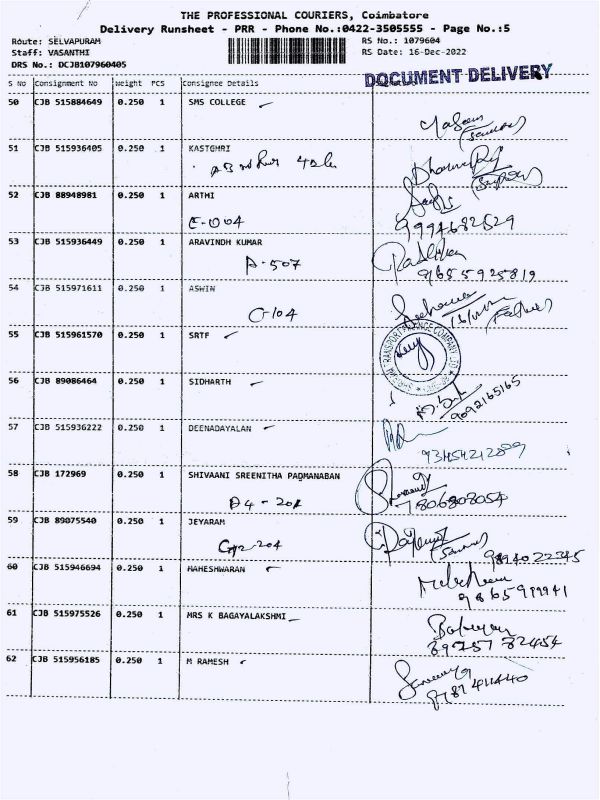 THE PROFESSIONAL COURIERS, Coimbatore
Delivery Runsheet - PRR - Phone No.:0422-3505555 - Page No.:5
Route: SELVAPURAM RS No.: 1079604
Staff: VASANTHI RS Date: 16-Dec-2022
DRS No.: DCJB107960405
DOCUMENT DELIVERY
S No Consignment No Weight PCS Consignee Details
50 CJB 515884649 0.250 1 SMS COLLEGE
51 CJB 515936405 0.250 1 KASTGHRI
52 CJB 88948981 0.250 1 ARTHI
E-1004 9994682529
53 CJB 515936449 0.250 1 ARAVINDH KUMAR
A-507 9655925819
54 CJB 515971611 0.250 1 ASWIN
G-104
55 CJB 515961570 0.250 1 SRTF
56 CJB 89086464 0.250 1 SIDHARTH
9092165165
57 CJB 515936222 0.250 1 DEENADAYALAN
58 CJB 172969 0.250 1 SHIVAANI SREENITHA PADMANABAN
D4-201 7806808054
59 CJB 89075540 0.250 1 JEYARAM
G2-204 9894022345
60 CJB 515946694 0.250 1 MAHESHWARAN
61 CJB 515975526 0.250 1 MRS K BAGAYALAKSHMI
89757 82454
62 CJB 515956185 0.250 1 M RAMESH